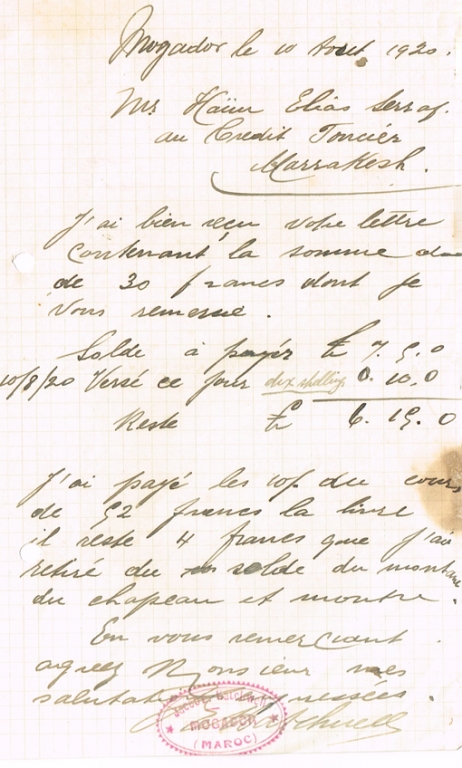 Mogador le 10 Aout 1920.
Mr Haïm Elias Serraf.
au Credit Foncier
Marrakesh.
J'ai bien reçu votre lettre
contenant la somme
de 30 francs dont je
vous remercie.
Solde à payer £ 7.5.0
10/8/20 Versé ce jour dix shellings 0.10.0
Reste £ 6.15.0
J'ai payé les 10/. du cours
de 52 francs la livre
il reste 4 francs que j'ai
retiré du solde du montant
du chapeau et montre.
En vous remerciant
agreez Monsieur mes
salutations empressées.
MOGADOR
(MAROC)